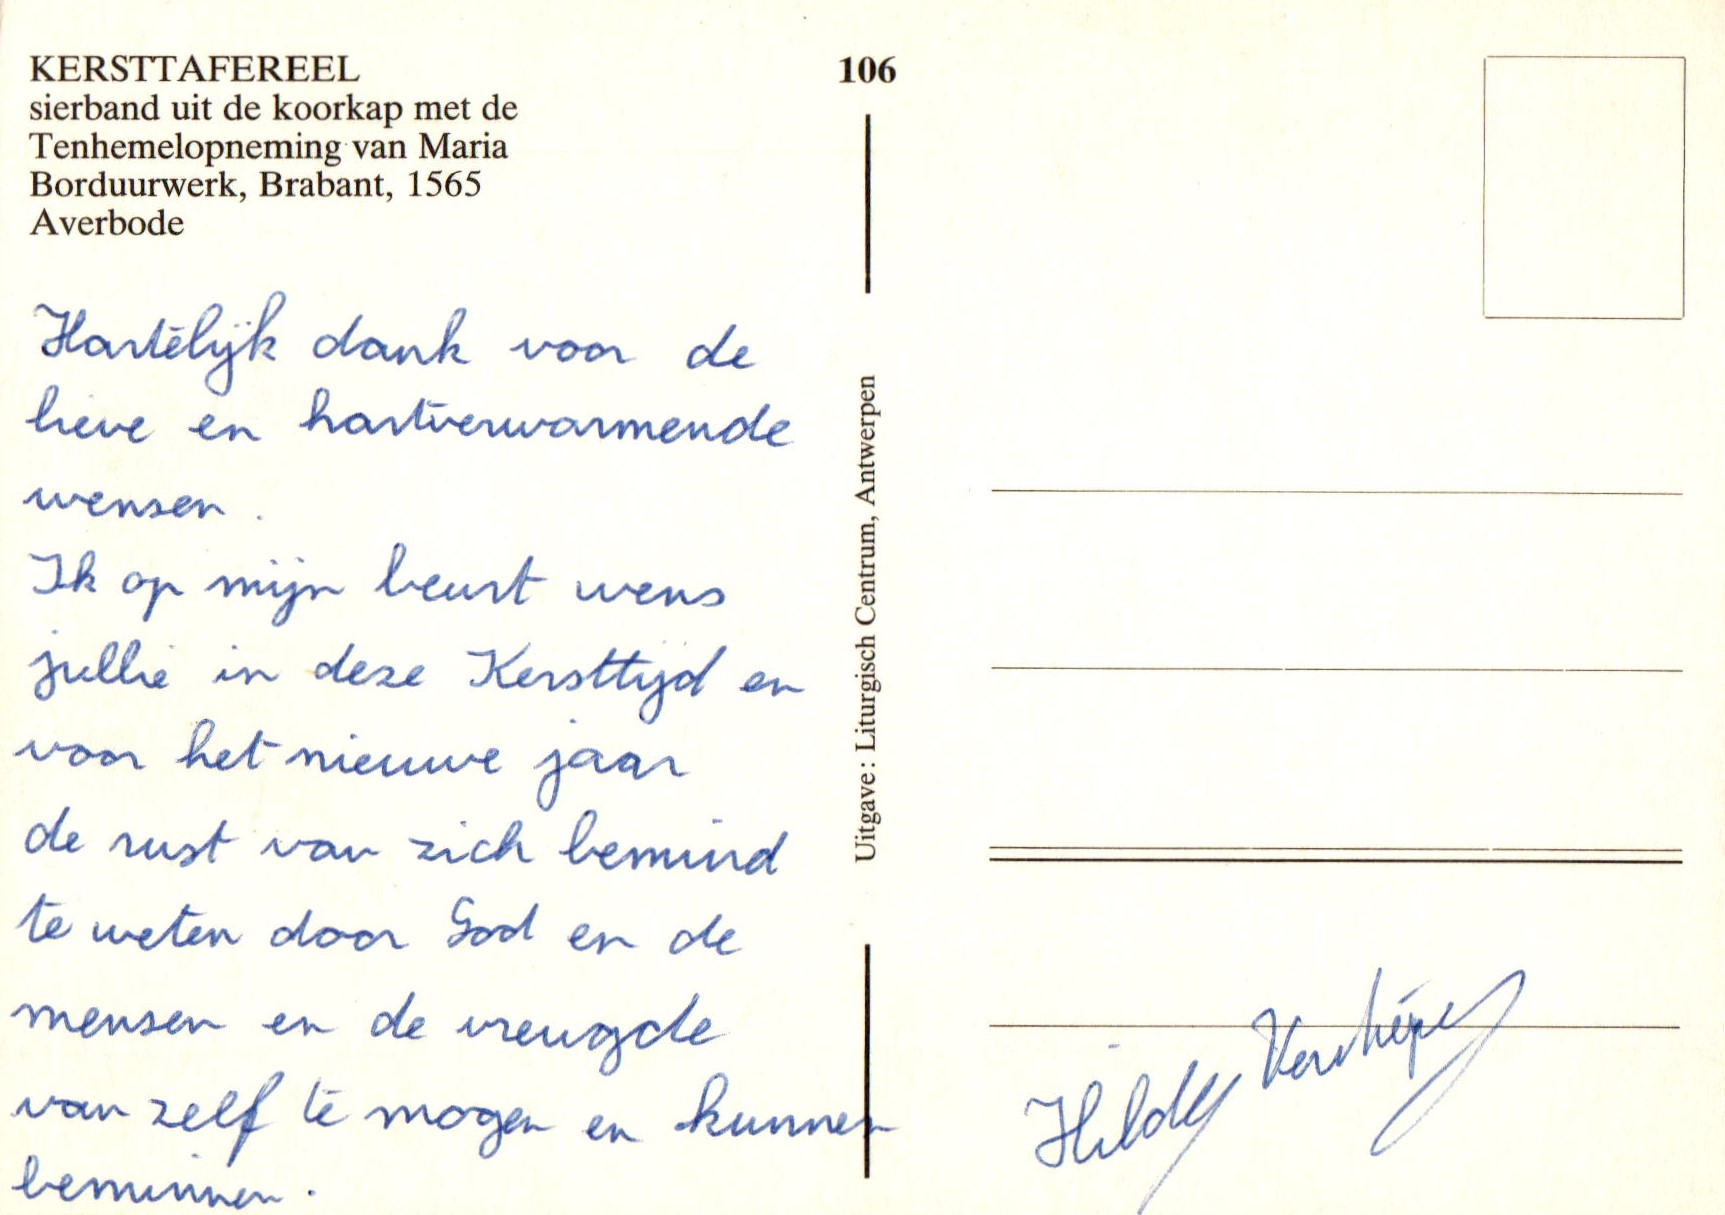 KERSTTAFEREEL
sierband uit de koorkap met de
Tenhemelopneming van Maria
Borduurwerk, Brabant, 1565
Averbode
Hartelijk dank voor de
lieve en hartverwarmende
wensen.
Ik op mijn beurt wens
jullie in deze Kersttijd en
voor het nieuwe jaar
de rust van zich bemind
te weten door God en de
mensen en de vreugde
van zelf te mogen en kunnen
beminnen.
106
Uitgave: Liturgisch Centrum, Antwerpen
Hilde